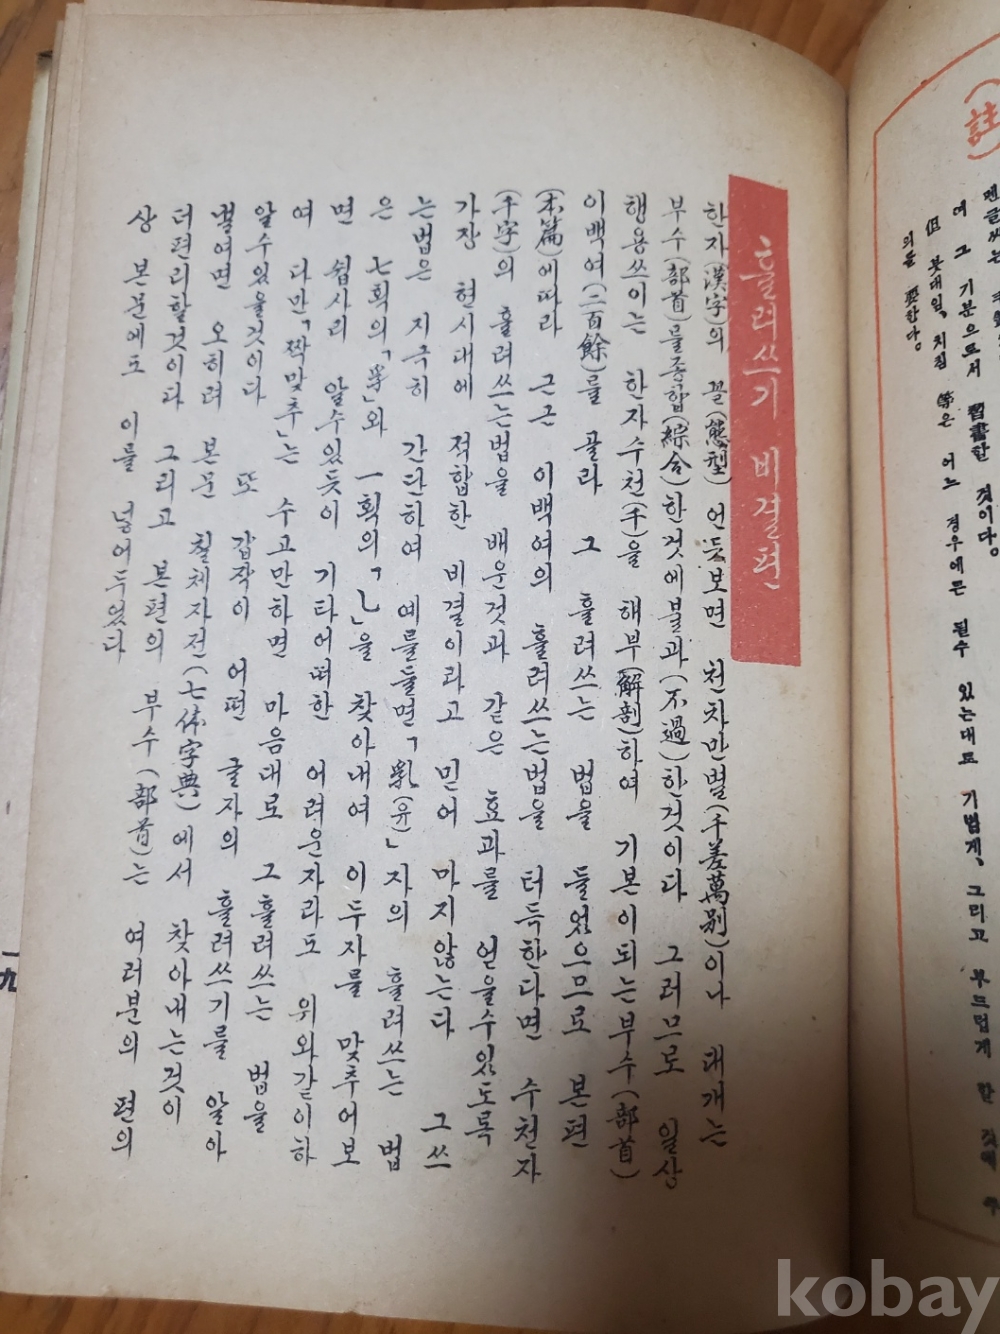 (註)
에 그 기분으로서 習書할 것이다。
但 붓대일、치짐 等은 어느 경우에든 될수 있는대로 기법게、그리고 부드럽게 할 것에 주
의를 要한다。
흘려쓰기 비결편
한자(漢字)의 꼴(態型) 언듯보면 천차만별(千差萬別)이나 대개는
부수(部首)를종합(綜合)한것에불과(不過)한것이다 그러므로 일상
행용쓰이는 한자수천(千)을 해부(解剖)하여 기본이되는부수(部首)
이백여(二百餘)를 골라 그 흘려쓰는 법을 들었으므로 본편
(本篇)에따라 근근 이백여의 흘려쓰는법을 터득한다면 수천자
(千字)의 흘려쓰는법을 배운것과 같은 효과를 얻을수있도록
가장 현시대에 적합한 비결이라고 믿어 마지않는다 그쓰
는법은 지극히 간단하여 예를들면「乳(유)」자의 흘려쓰는 법
은 七획의「孚」와 一획의「乚」을 찾아내여 이두자를 맞추어보
면 쉽사리 알수있듯이 기타어떠한 어려운자라도 위와같이하
여 다만「짝맞추」는 수고만하면 마음대로 그흘려쓰는 법을
알수있을것이다 또 갑작이 어떤 글자의 흘려쓰기를 알아
낼여면 오히려 본문 칠체자전(七体字典)에서 찾아내는것이
더편리할것이다 그리고 본편의 부수(部首)는 여러분의 편의
상 본문에도 이를 넣어두었다
一九
kobay